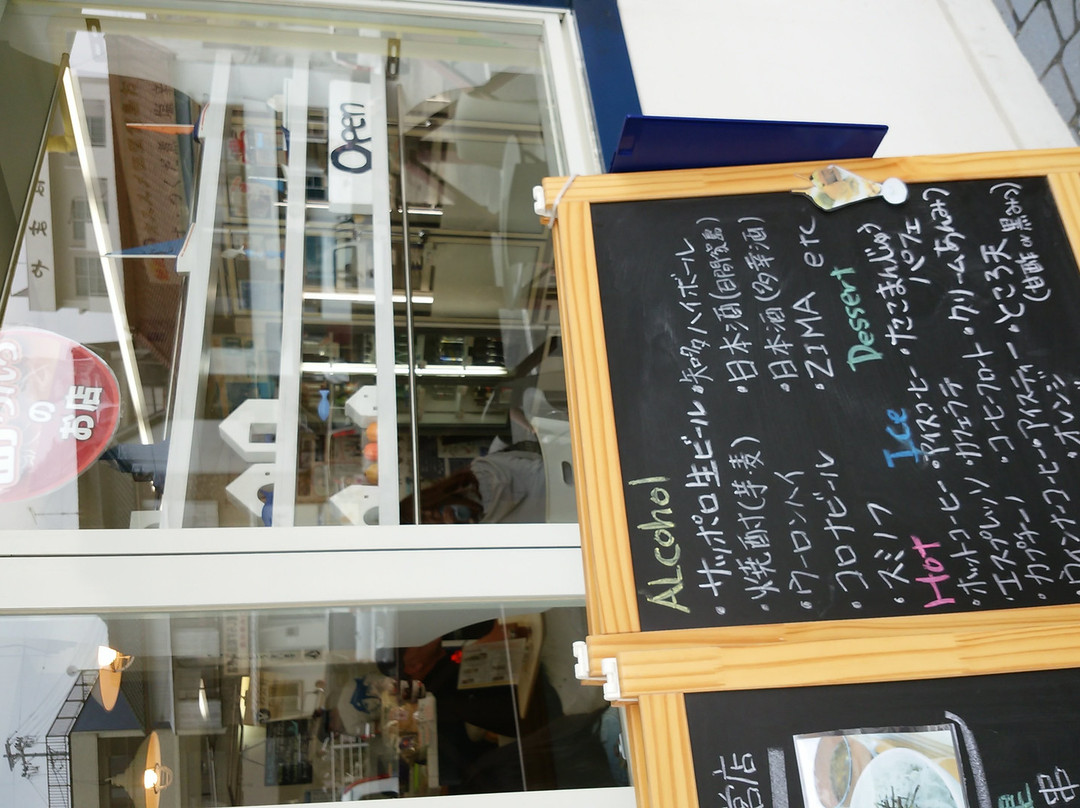 Open
のお店
ALcohol
・サッポロ生ビール
・知多ハイボール
・焼酎(芋麦)
・日本酒(日間賀島)
・ウーロンハイ
・日本酒(多幸酒)
・コロナビール
・ZIMA etc
・スミノフ
Dessert
Hot
Ice
・たこまんじゅう
・ホットコーヒー
・アイスコーヒー
パフェ
・エスプレッソ
・カフェラテ
・クリームあんみつ
・カプチーノ
・コーヒーフロート
・ところ天
・ウインナーコーヒー
・アイスティー
(甘酢or黒みつ)
・オレンジ
営店
串